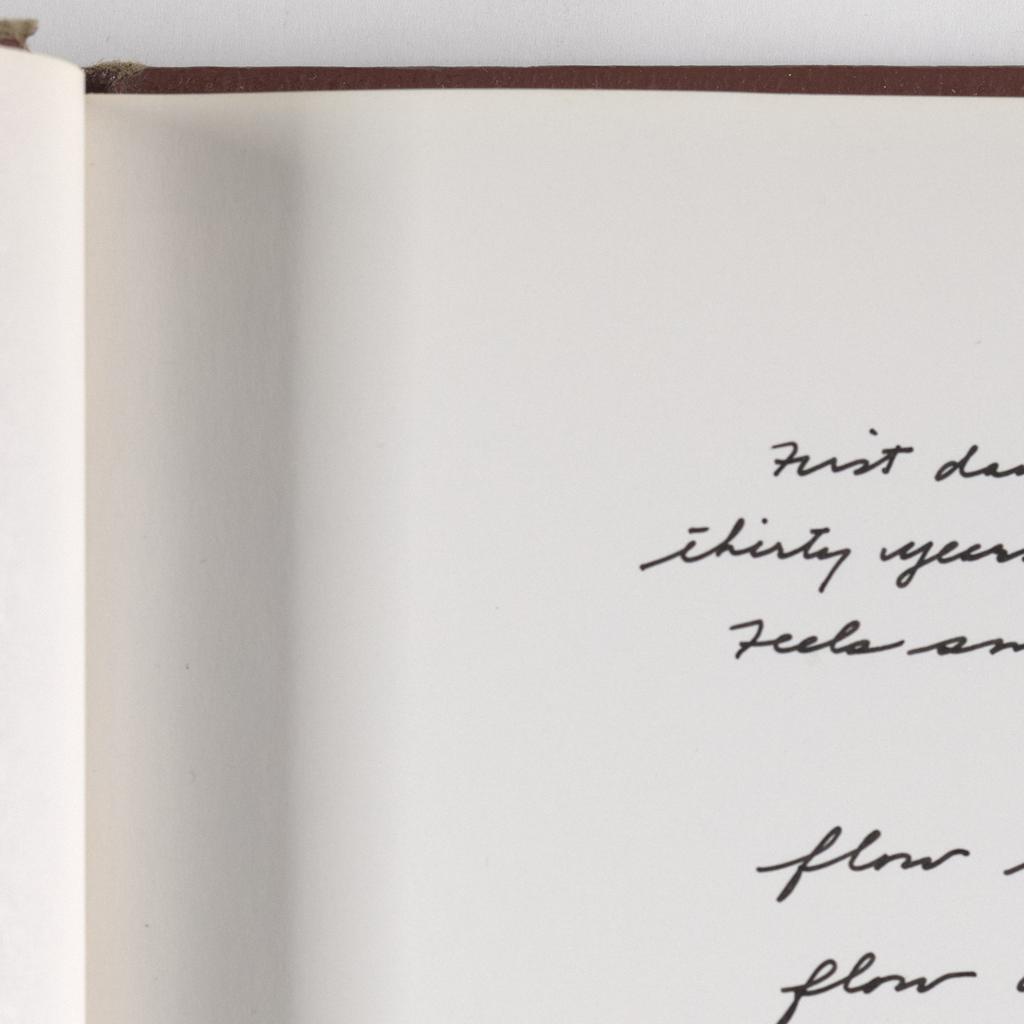 First
thirty years
Feels
flow
flow